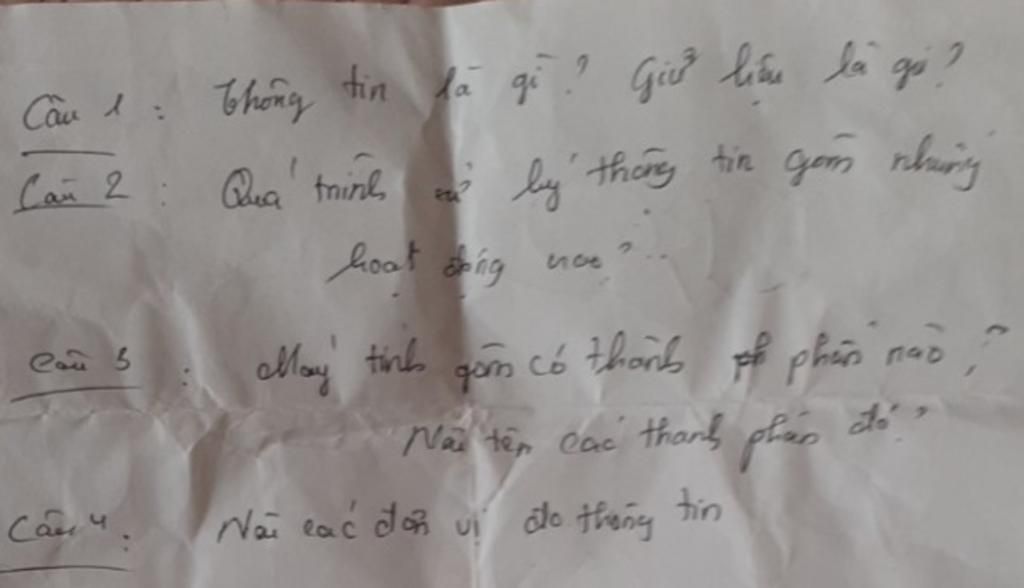 Câu 1 : Thông tin là gì ? Giữ liệu là gì ?
Câu 2 : Quá trình xử lý thông tin gồm những
hoạt động nào ?
Câu 3 : Máy tính gồm có thành ph phần nào ?
Nêu tên các thành phần đó ?
Câu 4 : Nêu các đơn vị đo thông tin